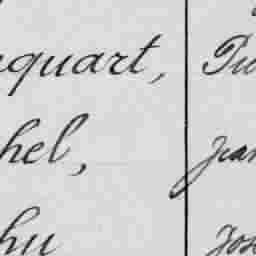 quart, Pie
hel, Jean
hu Jos